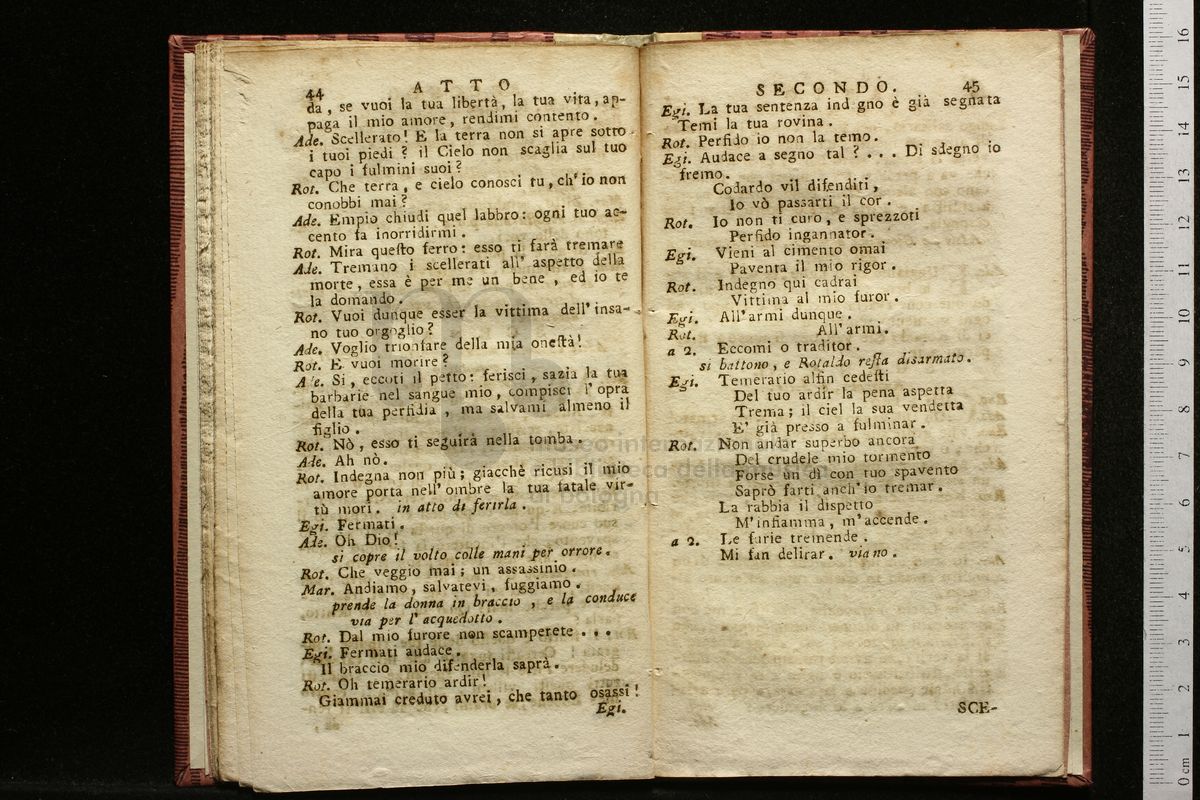 44 ATTO
da, se vuoi la tua libertà, la tua vita, ap-
paga il mio amore, rendimi contento.
Ade. Scellerato! E la terra non si apre sotto
i tuoi piedi? il Cielo non scaglia sul tuo
capo i fulmini suoi?
Rot. Che terra, e cielo conosci tu, ch'io non
conobbi mai?
Ade. Empio chiudi quel labbro: ogni tuo ac-
cento fa inorridirmi.
Rot. Mira questo ferro: esso ti farà tremare
Ade. Tremano i scellerati all' aspetto della
morte, essa è per me un bene, ed io te
la domando.
Rot. Vuoi dunque esser la vittima dell' insa-
no tuo orgoglio?
Ade. Voglio trionfare della mia onestà!
Rot. E vuoi morire?
A e. Si, eccoti il petto: ferisci, sazia la tua
barbarie nel sangue mio, compisci l'opra
della tua perfidia, ma salvami almeno il
figlio.
Rot. Nò, esso ti seguirà nella tomba.
Ade. Ah nò.
Rot. Indegna non più; giacchè ricusi il mio
amore porta nell' ombre la tua fatale vir-
tù mori. in atto di ferirla.
Egi. Fermati.
Ade. Oh Dio!
si copre il volto colle mani per orrore.
Rot. Che veggio mai; un assassinio.
Mar. Andiamo, salvatevi, fuggiamo.
prende la donna in braccio, e la conduce
via per l' acquedotto.
Rot. Dal mio furore non scamperete . . .
Egi. Fermati audace.
Il braccio mio difenderla saprà.
Rot. Oh temerario ardir!
Giammai creduto avrei, che tanto osassi!
Egi.
SECONDO. 45
Egi. La tua sentenza ind gno è già segnata
Temi la tua rovina.
Rot. Perfido io non la temo.
Egi. Audace a segno tal? . . . Di sdegno io
fremo.
Codardo vil difenditi,
Io vò passarti il cor.
Rot. Io non ti curo, e sprezzoti
Perfido ingannator.
Egi. Vieni al cimento omai
Paventa il mio rigor.
Rot. Indegno qui cadrai
Vittima al mio furor.
Egi. All'armi dunque.
Rot. All'armi.
a 2. Eccomi o traditor.
si battono, e Rotaldo resta disarmato.
Egi. Temerario alfin cedesti
Del tuo ardir la pena aspetta
Trema; il ciel la sua vendetta
E' già presso a fulminar.
Rot. Non andar superbo ancora
Del crudele mio tormento
Forse un dì con tuo spavento
Saprò farti anch'io tremar.
La rabbia il dispetto
M'infiamma, m'accende.
a 2. Le furie tremende.
Mi fan delirar. viano.
SCE-